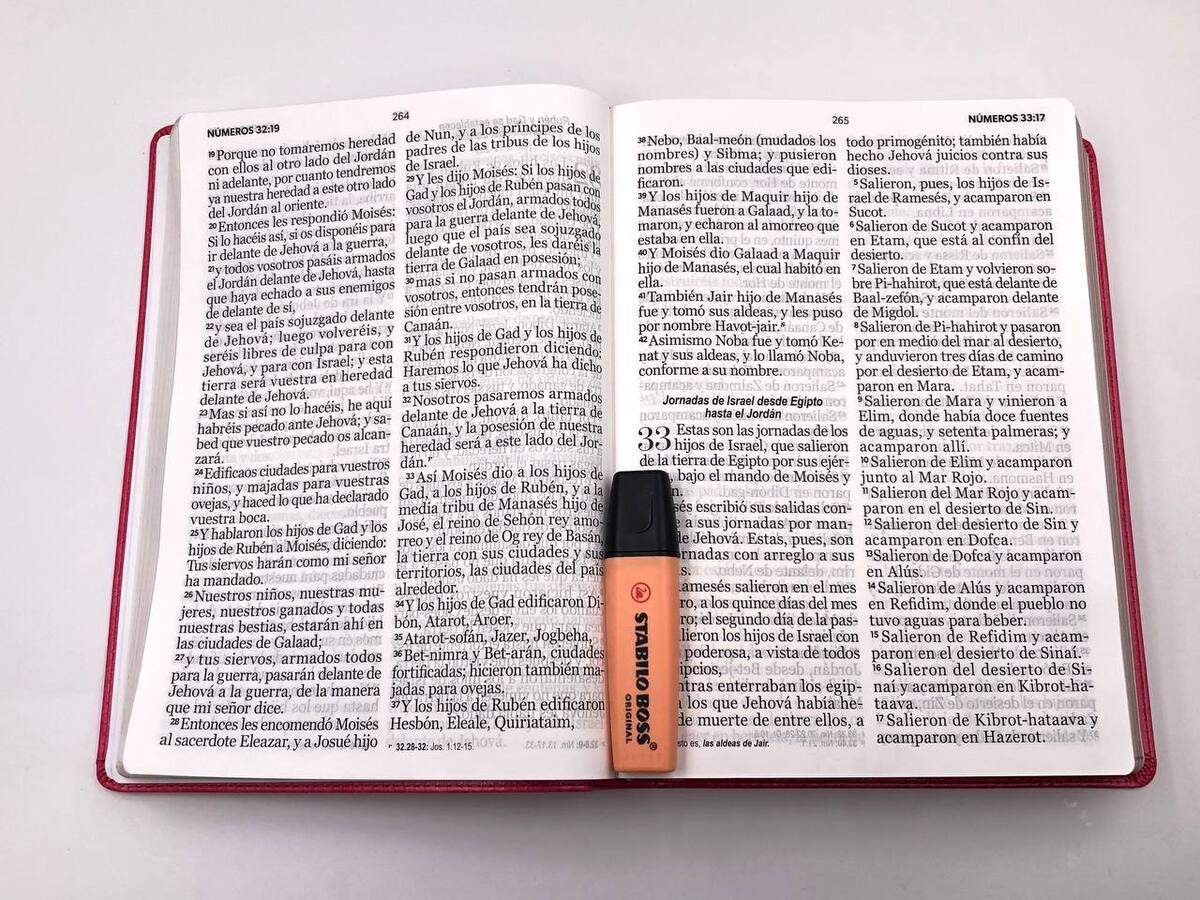 NÚMEROS 32:19
264
19Porque no tomaremos heredad
con ellos al otro lado del Jordán
ni adelante, por cuanto tendremos
ya nuestra heredad a este otro lado
del Jordán al oriente.
20Entonces les respondió Moisés:
Si lo hacéis así, si os disponéis para
ir delante de Jehová a la guerra,
21y todos vosotros pasáis armados
el Jordán delante de Jehová, hasta
que haya echado a sus enemigos
de delante de sí,
22y sea el país sojuzgado delante
de Jehová; luego volveréis, y
seréis libres de culpa para con
Jehová, y para con Israel; y esta
tierra será vuestra en heredad
delante de Jehová.
23Mas si así no lo hacéis, he aquí
habréis pecado ante Jehová; y sa-
bed que vuestro pecado os alcan-
zará.
24Edificaos ciudades para vuestros
niños, y majadas para vuestras
ovejas, y haced lo que ha declarado
vuestra boca.
25Y hablaron los hijos de Gad y los
hijos de Rubén a Moisés, diciendo:
Tus siervos harán como mi señor
ha mandado.
26Nuestros niños, nuestras mu-
jeres, nuestros ganados y todas
nuestras bestias, estarán ahí en
las ciudades de Galaad;
27y tus siervos, armados todos
para la guerra, pasarán delante de
Jehová a la guerra, de la manera
que mi señor dice.
28Entonces les encomendó Moisés
al sacerdote Eleazar, y a Josué hijo
de Nun, y a los príncipes de los
padres de las tribus de los hijos
de Israel.
29Y les dijo Moisés: Si los hijos de
Gad y los hijos de Rubén pasan con
vosotros el Jordán, armados todos
para la guerra delante de Jehová,
luego que el país sea sojuzgado
delante de vosotros, les daréis la
tierra de Galaad en posesión;
30mas si no pasan armados con
vosotros, entonces tendrán pose-
sión entre vosotros, en la tierra de
Canaán.
31Y los hijos de Gad y los hijos de
Rubén respondieron diciendo:
Haremos lo que Jehová ha dicho
a tus siervos.
32Nosotros pasaremos armados
delante de Jehová a la tierra de
Canaán, y la posesión de nuestra
heredad será a este lado del Jor-
dán.r
33Así Moisés dio a los hijos de
Gad, a los hijos de Rubén, y a la
media tribu de Manasés hijo de
José, el reino de Sehón rey amo-
rreo y el reino de Og rey de Basán,
la tierra con sus ciudades y sus
territorios, las ciudades del país
alrededor.
34Y los hijos de Gad edificaron Di-
bón, Atarot, Aroer,
35Atarot-sofán, Jazer, Jogbeha,
36Bet-nimra y Bet-arán, ciudades
fortificadas; hicieron también ma-
jadas para ovejas.
37Y los hijos de Rubén edificaron
Hesbón, Eleale, Quiriataim,
r 32.28-32: Jos. 1.12-15.
265
NÚMEROS 33:17
38Nebo, Baal-meón (mudados los
nombres) y Sibma; y pusieron
nombres a las ciudades que edi-
ficaron.
39Y los hijos de Maquir hijo de
Manasés fueron a Galaad, y la to-
maron, y echaron al amorreo que
estaba en ella.
40Y Moisés dio Galaad a Maquir
hijo de Manasés, el cual habitó en
ella.
41También Jair hijo de Manasés
fue y tomó sus aldeas, y les puso
por nombre Havot-jair.s
42Asimismo Noba fue y tomó Ke-
nat y sus aldeas, y lo llamó Noba,
conforme a su nombre.
Jornadas de Israel desde Egipto
hasta el Jordán
33 Estas son las jornadas de los
hijos de Israel, que salieron
de la tierra de Egipto por sus ejér-
bajo el mando de Moisés y
n.
s escribió sus salidas con-
e a sus jornadas por man-
e Jehová. Estas, pues, son
rnadas con arreglo a sus
amesés salieron en el mes
ro, a los quince días del mes
ro; el segundo día de la pas-
lieron los hijos de Israel con
poderosa, a vista de todos
ipcios,
ntras enterraban los egip-
a los que Jehová había he-
de muerte de entre ellos, a
sto es, las aldeas de Jair.
todo primogénito; también había
hecho Jehová juicios contra sus
dioses.
5Salieron, pues, los hijos de Is-
rael de Ramesés, y acamparon en
Sucot.
6Salieron de Sucot y acamparon
en Etam, que está al confín del
desierto.
7Salieron de Etam y volvieron so-
bre Pi-hahirot, que está delante de
Baal-zefón, y acamparon delante
de Migdol.
8Salieron de Pi-hahirot y pasaron
por en medio del mar al desierto,
y anduvieron tres días de camino
por el desierto de Etam, y acam-
paron en Mara.
9Salieron de Mara y vinieron a
Elim, donde había doce fuentes
de aguas, y setenta palmeras; y
acamparon allí.
10Salieron de Elim y acamparon
junto al Mar Rojo.
11Salieron del Mar Rojo y acam-
paron en el desierto de Sin.
12Salieron del desierto de Sin y
acamparon en Dofca.
13Salieron de Dofca y acamparon
en Alús.
14Salieron de Alús y acamparon
en Refidim, donde el pueblo no
tuvo aguas para beber.
15Salieron de Refidim y acam-
paron en el desierto de Sinaí.
16Salieron del desierto de Si-
naí y acamparon en Kibrot-ha-
taava.
17Salieron de Kibrot-hataava y
acamparon en Hazerot.
STABILO BOSS®
ORIGINAL